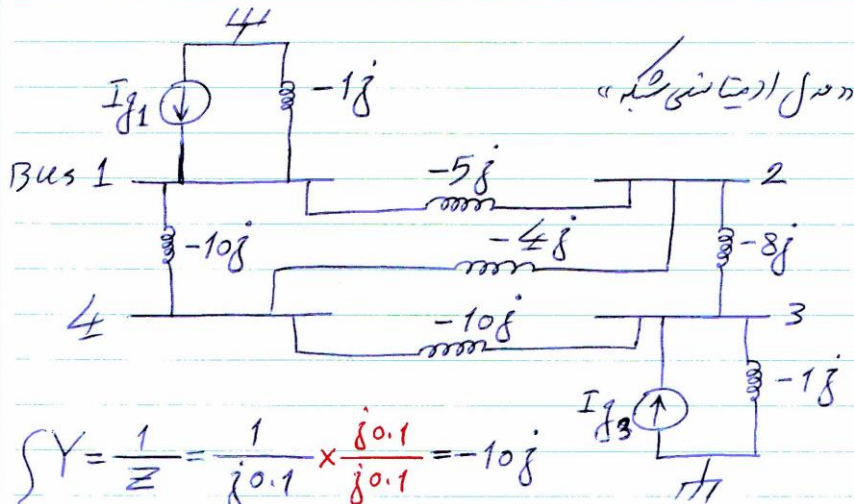 Ig1
-1j
«مدل ادمیتانسی شبکه»
Bus 1
-5j
2
-10j
-4j
-8j
4
-10j
3
Ig3
-1j
Y = 1/Z = 1/j0.1 × j0.1/j0.1 = -10j